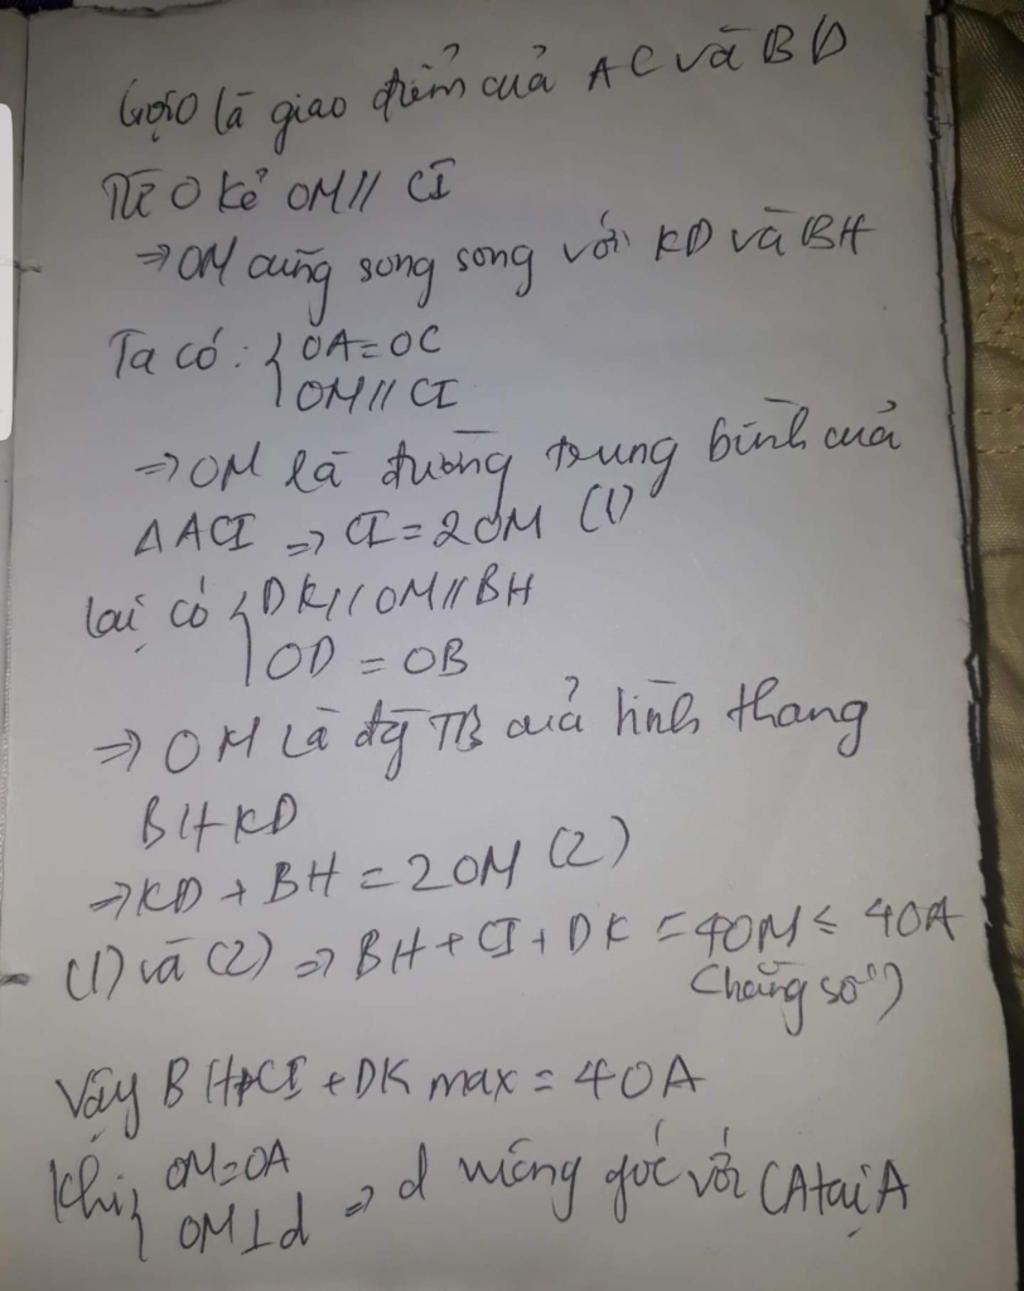 Gọi O là giao điểm của AC và BD
Từ O kẻ OM // CI
=> OM cũng song song với KD và BH
Ta có: { OA = OC
OM // CI
=> OM là đường trung bình của
Δ ACI => CI = 2OM (1)
lại có { DK // OM // BH
OD = OB
=> OM là đg TB của hình thang
BHKD
=> KD + BH = 2OM (2)
(1) và (2) => BH + CI + DK = 4OM ≤ 4OA
(hằng số)
Vậy BH + CI + DK max = 4OA
Khi { OM = OA
OM ⊥ d => d vuông góc với CA tại A